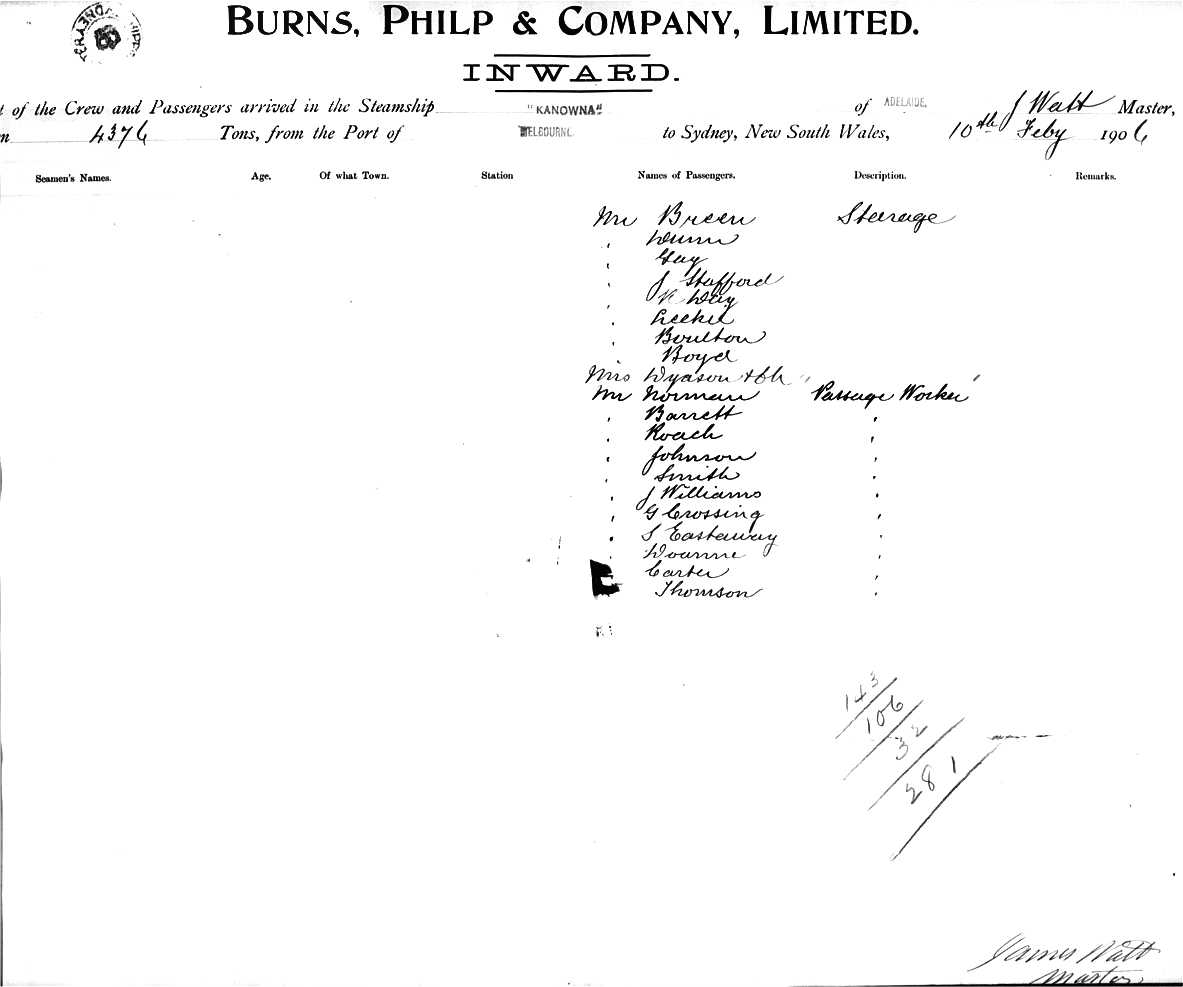 BURNS, PHILP & COMPANY, LIMITED.
INWARD.
of the Crew and Passengers arrived in the Steamship "KANOWNA" of ADELAIDE, J Watt Master,
4376 Tons, from the Port of MELBOURNE to Sydney, New South Wales, 10th Feby 1906
Seamen's Names. Age. Of what Town. Station Names of Passengers. Description. Remarks.
Mr Breen Steerage
" Dunn
" Gay
" J Stafford
" Way
" Leckie
" Boulton
" Boyd
Mrs Dyason + Ch "
Mr Norman Passage Worker
" Barrett "
" Roach "
" Johnson "
" Smith "
" J Williams "
" G Crossing "
" S Eastaway "
" "
Carter "
Thomson "
143
106
32
281
James Watt
Master